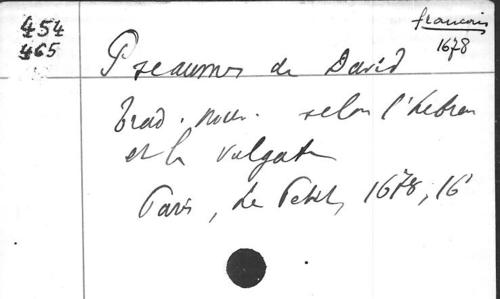 454
465
francois
1678
Pseaumes de David
trad. nouv. selon l'hebreu
et la vulgate
Paris, Le Petit, 1678, 16°